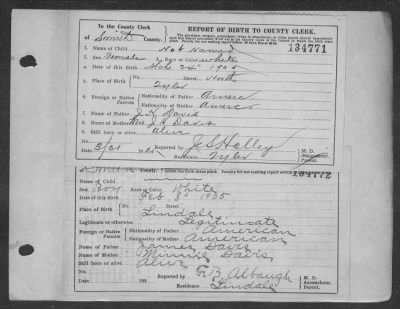 To the County Clerk
of Smith County:
REPORT OF BIRTH TO COUNTY CLERK.
134771
1. Name of Child Not Named
2. Sex Female Race or Color white
3. Date of this Birth Mch 24" 1905
4. Place of Birth No. North Street
Tyler
5. Foreign or Native Parents Nationality of Father Americ
Nationality of Mother Americ
6.
7. Name of Father J. H. Davis
Name of Mother Mrs J H Davis
8. Still born or alive alive
Date 3/31 190 Reported by J S Kelley M. D.
Residence Tyler Accoucheur. Parent.
134772
Name of Child
Sex Boy Race or Color White
Date of this Birth Feb 8th 1905
Place of Birth No. Street
Lindale
Legitimate or otherwise Legitimate
Foreign or Native Parents Nationality of Father American
Nationality of Mother American
Name of Father James Davis
Name of Mother Minnie Davis
Still born or alive Alive
Date 190 Reported by F. B. Albaugh M. D.
Residence Lindale Accoucheur. Parent.